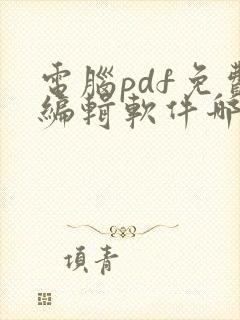 電腦pdf免費
編輯軟件哪
項青